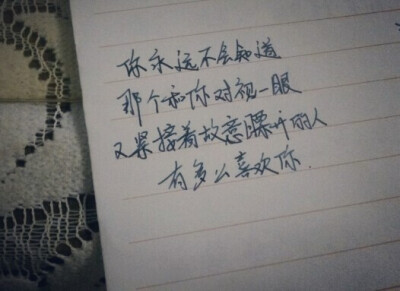 你永远不会知道
那个和你对视一眼
又紧接着故意瞟开的人
有多么喜欢你.